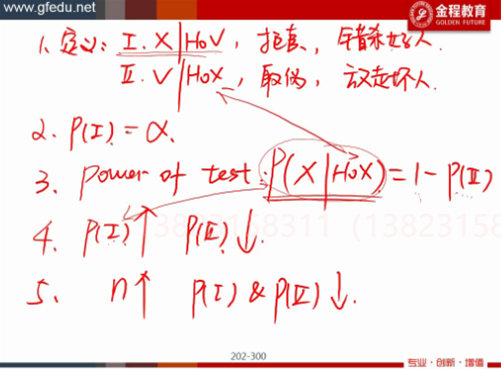 www.gfedu.net
金程教育
GOLDEN FUTURE
1、定义: I. X|H₀V, 拒真, 错杀好人.
II. V|H₀X, 取伪, 放走坏人.
2. P(I) = α.
3. power of test: P(X|H₀X) = 1 - P(II)
4. P(I)↑ P(II)↓.
5、 n↑ P(I) & P(II)↓.
202-300
专业·创新·增值